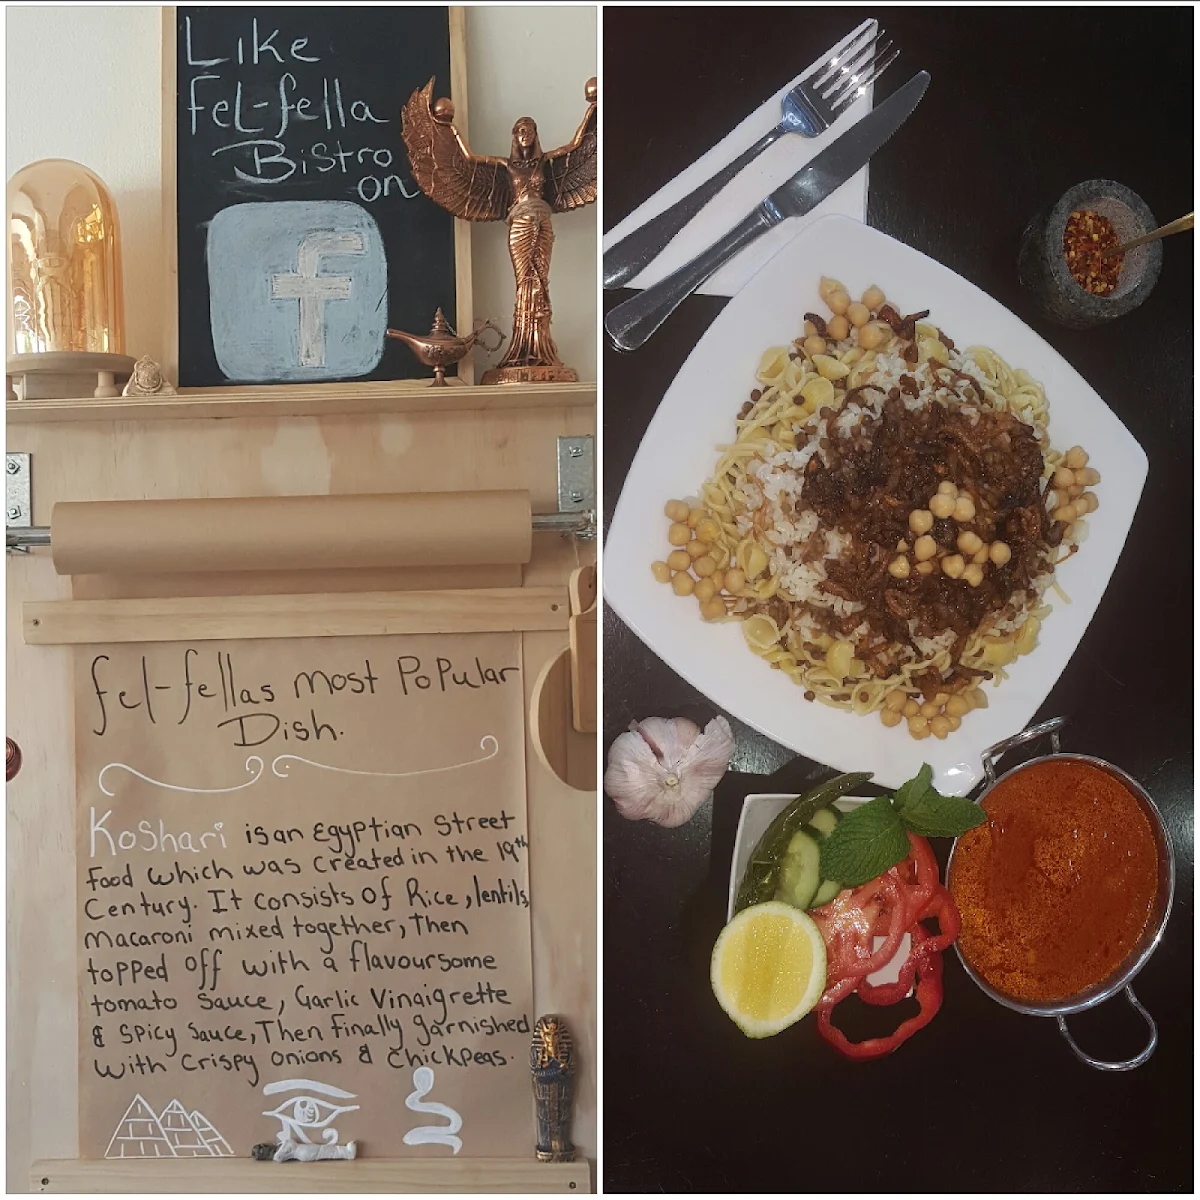 Like
fel-fella
Bistro
on
f
fel-fellas most Popular
Dish.
Koshari is an Egyptian Street
Food which was created in the 19th
Century. It consists of Rice, lentils,
macaroni mixed together, Then
topped off with a flavoursome
tomato Sauce, Garlic Vinaigrette
& Spicy Sauce, Then finally garnished
with crispy onions & chickpeas.